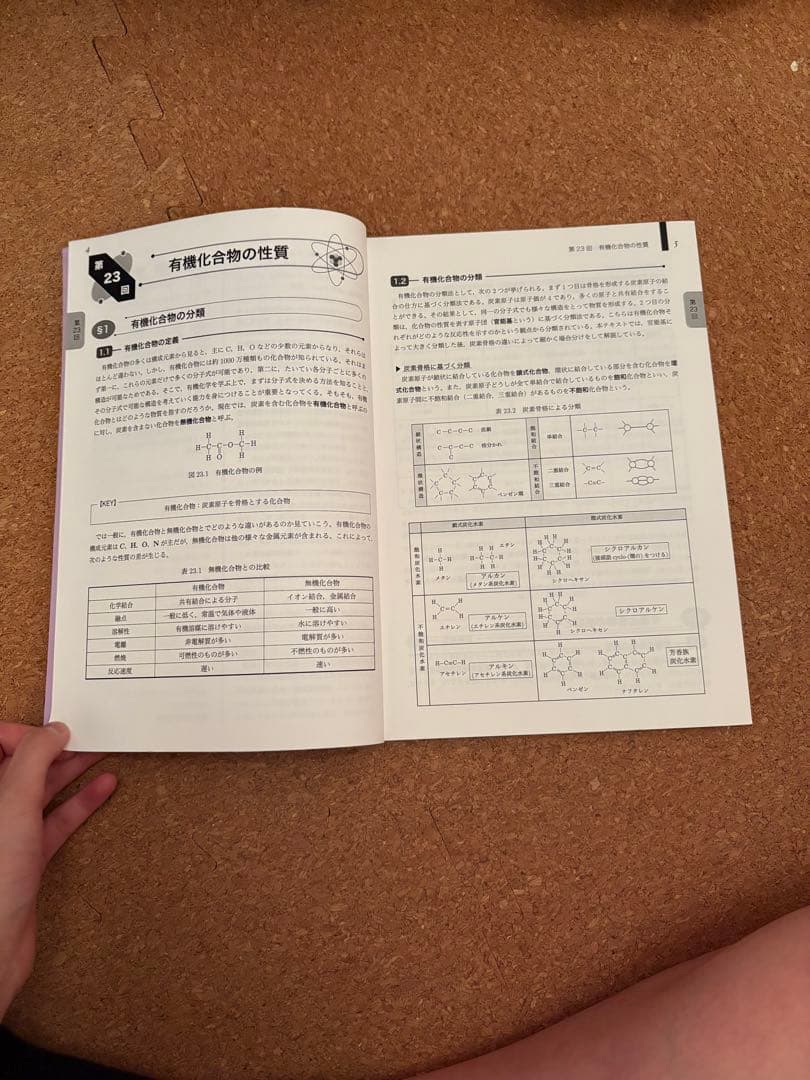 4
第
23
回
有機化合物の性質
第23回
§1
有機化合物の分類
1.1 有機化合物の定義
有機化合物の多くは構成元素から見ると、主にC, H, Oなどの少数の元素からなり、それらは
ほとんど違わない。しかし、有機化合物には約1000万種類もの化合物が知られている。それはま
ず第一に、これらの元素だけで多くの分子式が可能であり、第二に、たいてい各分子ごとに多くの
構造が可能なためである。そこで、有機化学を学ぶ上で、まずは分子式を決める方法を知ることと、
その分子式で可能な構造を考えていく能力を身につけることが重要となってくる。そもそも、有機
化合物とはどのような物質を指すのだろうか。現在では、炭素を含む化合物を有機化合物と呼ぶの
に対し、炭素を含まない化合物を無機化合物と呼ぶ。
H H
H-C-C-O-C-H
H O H
図23.1 有機化合物の例
【KEY】
有機化合物：炭素原子を骨格とする化合物
では一般に、有機化合物と無機化合物とでどのような違いがあるのか見ていこう。有機化合物の
構成元素はC, H, O, Nが主だが、無機化合物は他の様々な金属元素が含まれる。これによって、
次のような性質の差が生じる。
表23.1 無機化合物との比較
有機化合物 無機化合物
化学結合 共有結合による分子 イオン結合、金属結合
融点 一般に低く、常温で気体や液体 一般に高い
溶解性 有機溶媒に溶けやすい 水に溶けやすい
電離 非電解質が多い 電解質が多い
燃焼 可燃性のものが多い 不燃性のものが多い
反応速度 遅い 速い
第23回 有機化合物の性質 5
第23回
1.2 有機化合物の分類
有機化合物の分類法として、次の2つが挙げられる。まず1つ目は骨格を形成する炭素原子の結
合の仕方に基づく分類法である。炭素原子は原子価が4であり、多くの原子と共有結合をするこ
とができる。その結果として、同一の分子式でも様々な構造をとって物質を形成する。2つ目の分
類は、化合物の性質を表す原子団（官能基という）に基づく分類法である。こちらは有機化合物そ
れぞれがどのような反応性を示すのかという観点から分類されている。本テキストでは、官能基に
よって大きく分類した後、炭素骨格の違いによって細かく場合分けをして解説している。
▶ 炭素骨格に基づく分類
炭素原子が鎖状に結合している化合物を鎖式化合物、環状に結合している部分を含む化合物を環
式化合物という。また、炭素原子どうしが全て単結合で結合しているものを飽和化合物といい、炭
素原子間に不飽和結合（二重結合、三重結合）があるものを不飽和化合物という。
表23.2 炭素骨格による分類
鎖状構造 C-C-C-C 直鎖 飽和結合 単結合
C-C-C-C 枝分かれ
C
環状構造 ベンゼン環 不飽和結合 二重結合 C=C
三重結合 -C≡C-
鎖式炭化水素 環式炭化水素
飽和炭化水素
メタン エタン
アルカン
(メタン系炭化水素)
シクロヘキサン
シクロアルカン
(接頭語 cyclo (環の) をつける)
不飽和炭化水素
エチレン
アルケン
(エチレン系炭化水素)
シクロヘキセン
シクロアルケン
H-C≡C-H
アセチレン
アルキン
(アセチレン系炭化水素)
ベンゼン ナフタレン
芳香族
炭化水素